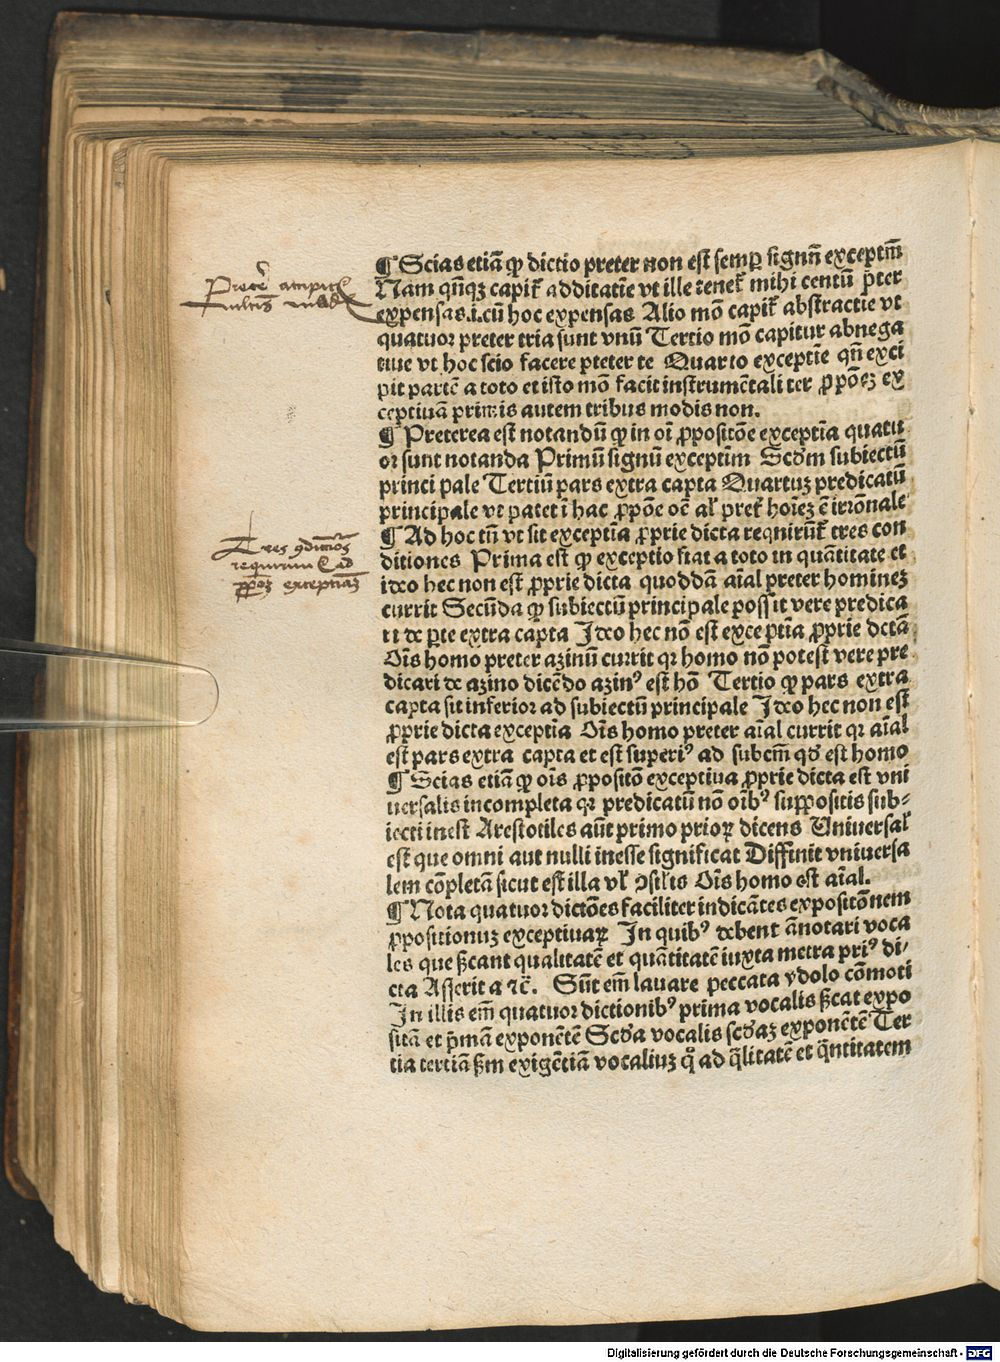 ¶ Scias etiā ꝙ dictio preter non est semꝑ signū exceptiū
Nam qn̄qꝫ capit᷑ additatiē vt ille tenet᷑ mihi centū p̄ter
expensas.i.cū hoc expensas Alio mō capit᷑ abstractie vt
quatuor preter tria sunt vnū Tertio mō capitur abnega
tiue vt hoc scio facere pteter te Quarto exceptiē qn̄ exci
pit partē a toto et isto mō facit instrumētaliter ꝓpōeꝫ ex
ceptiuā primis autem tribus modis non.
¶ Preterea est notandū ꝙ in oī ꝓpositōe exceptīa quatu
or sunt notanda Primū signū exceptiūm Scd̄m subiectū
princi pale Tertiū pars extra capta Quartuꝫ predicatū
principale vt patet ī hac ꝓpōe oē aīal pret᷑ hoīeꝫ ē irrōnale
¶ Ad hoc tn̄ vt sit exceptīa ꝓprie dicta reqnirūt᷑ tres con
ditiones Prima est ꝙ exceptio fiat a toto in quātitate et
ideo hec non est ꝓprie dicta quoddā aīal preter homineꝫ
currit Secūda ꝙ subiectū principale possit vere predica
ri de ꝑte extra capta Ideo hec nō est exceptīa ꝓprie dctā
Oīs homo preter azinū currit qꝛ homo nō potest vere pre
dicari de azino dicēdo azinꝰ est hō Tertio ꝙ pars extra
capta sit inferior ad subiectū principale Ideo hec non est
ꝓprie dicta exceptīa Oīs homo preter aīal currit qꝛ aīal
est pars extra capta et est superiꝰ ad subcm̄ qd̄ est homo
¶ Scias etiā ꝙ oīs ꝓpositō exceptiua ꝓprie dicta est vni
uersalis incompleta qꝛ predicatū nō oībꝰ suppositis sub⸗
iecti inest Arestotiles aūt primo prioꝝ dicens Uniuersal᷑
est que omni aut nulli inesse significat Diffinit vniuersa
lem cōpletā sicut est illa vl᷑ ꝯsil̄is Oīs homo est aīal.
¶ Nota quatuor dictōes faciliter indicātes expositōnem
ꝓpositionuꝫ exceptiuaꝝ In quibꝰ debent ānotari voca
les que ßcant qualitatē et quātitatē iuxta metra priꝰ di⸗
cta Asserit a ⁊c̄. Sūt em̄ lauare peccata ydolo cōmoti
In illis em̄ quatuor dictionibꝰ prima vocalis ßcat expo
sitā et p̄mā exponētē Scd̄a vocalis scd̄aꝫ exponētē Ter
tia tertiā ßm exigētiā vocaliuꝫ qͣ̄ ad q̄litatē et q̄ntitatem
multis modis
Tres ꝯditiōes
requirun
ꝓpōeꝫ exceptiuaꝫ
Digitalisierung gefördert durch die Deutsche Forschungsgemeinschaft - DFG